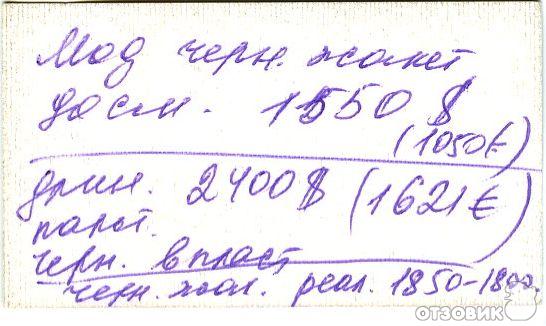 Мод черн. жакет
досм. 1550 $
(1050€)
длин. 2400$ (1621€)
пальт.
черн. в пласт
черн. жак. реал. 1850-1800
ОТЗОВИК